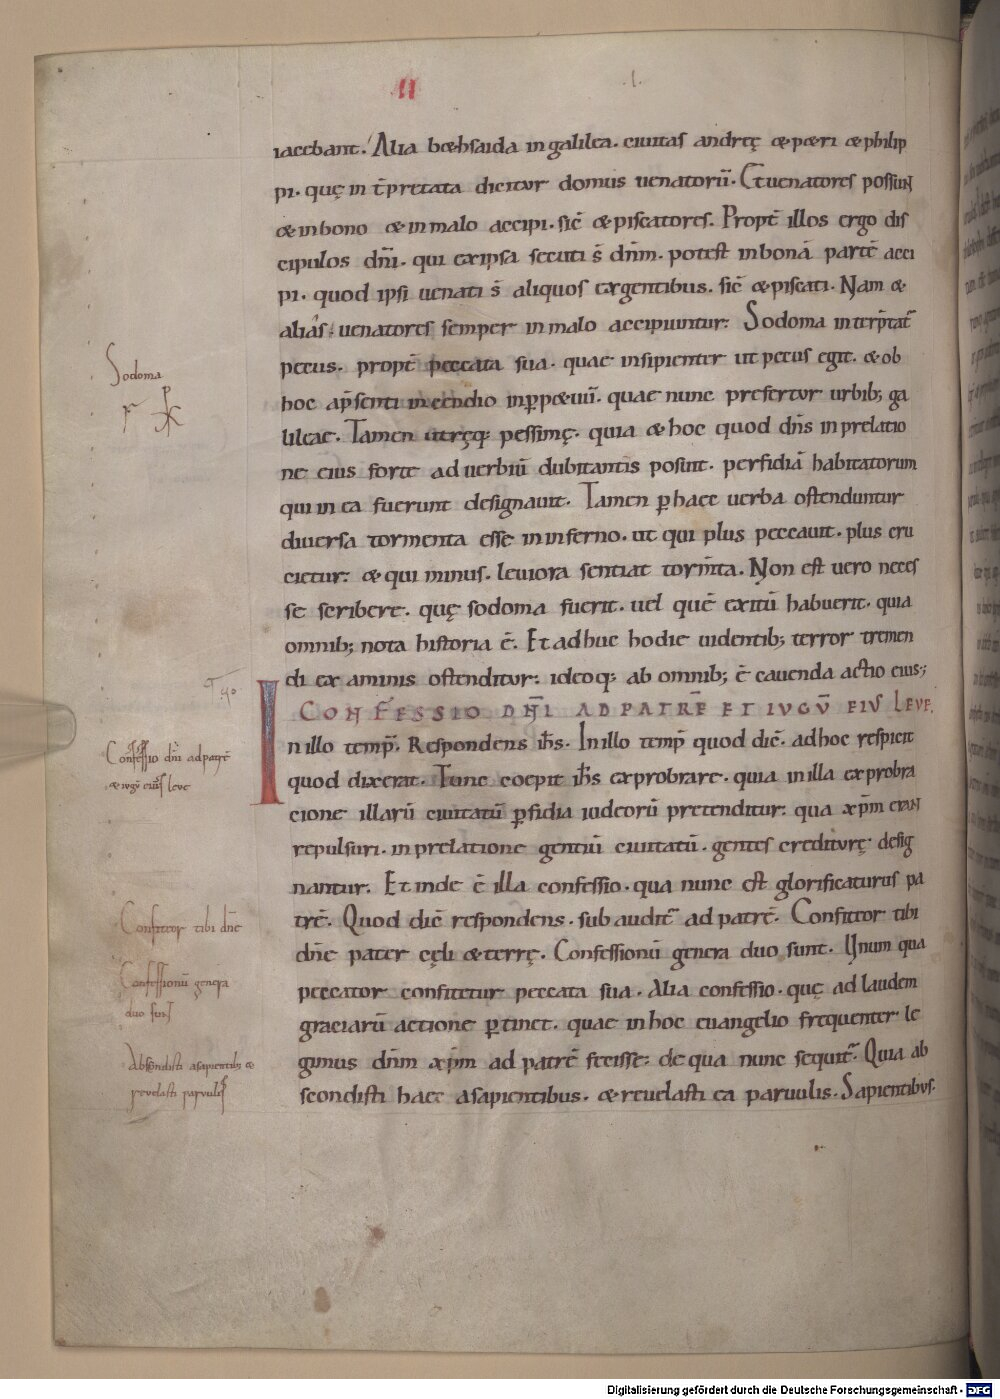 II
iacebant. Alia bethsaida in galilea. ciuitas andreę et petri et philip
pi. quę in t̄pretata dicitur domus uenatorū. Et uenatores possunt
et in bono et in malo accipi. sic̄ et piscatores. Propt̄ illos ergo dis
cipulos dn̄i. qui ex ipsa secuti s̄ dn̄m. potest in bonā partē acci
pi. quod ipsi uenati s̄ aliquos ex gentibus. sic̄ et piscati. Nam et
alias. uenatores semper in malo accipiuntur: Sodoma interp̄tat̄
pecus. propt̄ peccata sua. quae insipienter ut pecus egit. et ob
hoc ap̄senti incendio inꝑpetuū. quae nunc prefertur urbib; ga
lileae. Tamen uteręq; pessimę. quia et hoc quod dn̄s in prelatio
ne eius forte aduerbiū dubitantis posuit. perfidiā habitatorum
qui in ea fuerunt designauit. Tamen ꝑ haec uerba ostenduntur
diuersa tormenta esse in inferno. ut qui plus peccauit. plus cru
cietur: et qui minus. leuiora sentiat torm̄ta. Non est uero neces
se scribere. quę sodoma fuerit. uel quē exitū habuerit. quia
omnib; nota historia ē. Et adhuc hodie uidentib; terror tremen
di examinis ostenditur: ideoq; ab omnib; ē cauenda actio eius;
CONFESSIO DN̄I AD PATRĒ ET IUGŪ EIUS LEUE.
In illo temp̄. Respondens ih̄s. In illo temp̄ quod dic̄. ad hoc respicit
quod dixerat. Tunc coepit ih̄s exprobrare. quia in illa exprobra
cione illarū ciuitatū ꝑfidia iudeorū pretenditur: qua xp̄m erant
repulsuri. in prelatione gentiū ciuitatū. gentes crediturę desig
nantur. Et inde ē illa confessio. qua nunc est glorificaturus pa
trē. Quod dic̄ respondens. subaudit̄ ad patrē. Confiteor tibi
dn̄e pater cęli et terrę. Confessionū genera duo sunt. Unum qua
peccator confitetur peccata sua. Alia confessio. quę ad laudem
graciarū actione ꝑtinet. quae in hoc euangelio frequenter le
gimus dn̄m xp̄m ad patrē fecisse: de qua nunc sequit̄. Quia ab
scondisti haec a sapientibus. et reuelasti ea paruulis. Sapientibus.
Sodoma
Confessio dn̄i ad patrē
et iugū eius leue
Confiteor tibi dn̄e
Confessionū genera
duo sunt
Abscondisti a sapientib; et
reuelasti paruulis
Digitalisierung gefördert durch die Deutsche Forschungsgemeinschaft - DFG